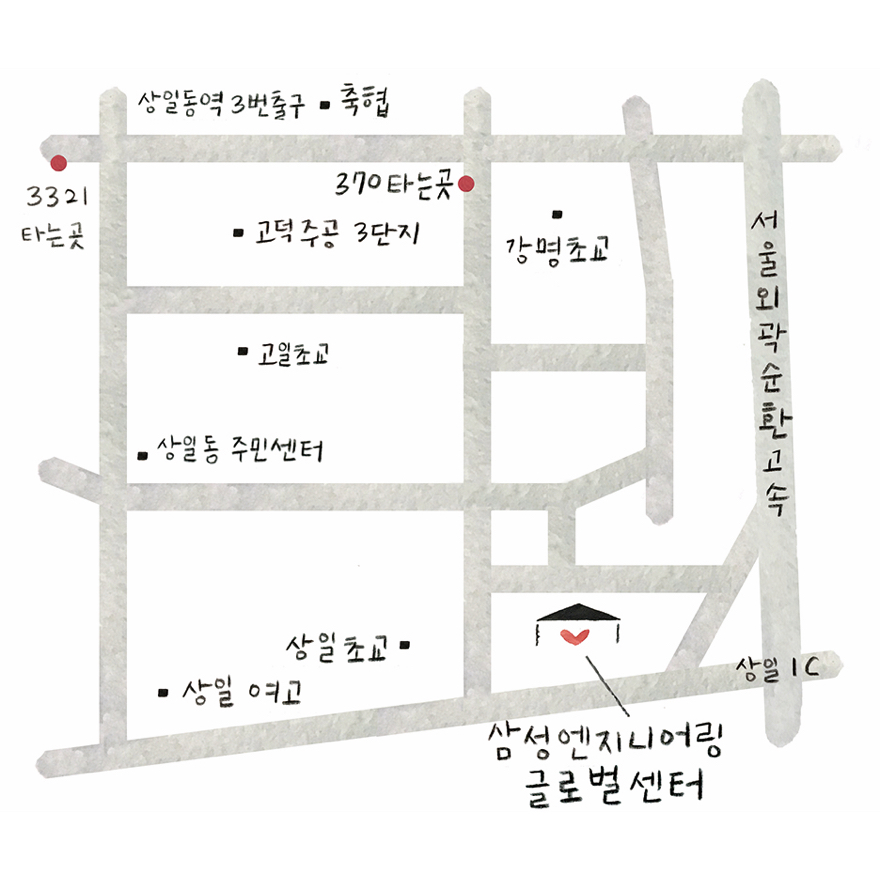 상일동역 3번출구
축협
3321
타는곳
370타는곳
고덕주공 3단지
강명초교
서울외곽순환고속
고일초교
상일동 주민센터
상일초교
상일 여고
상일 IC
삼성엔지니어링
글로벌센터